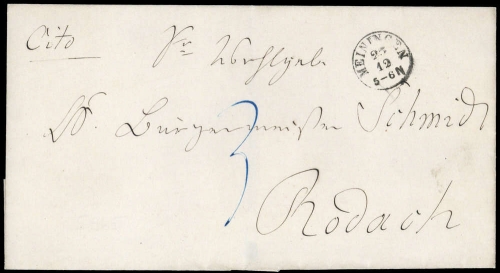 Cito
Sr Wohlgeb.
MEININGEN
23
12
5-6N
H. Bürgermeister Schmidt
3
Rodach